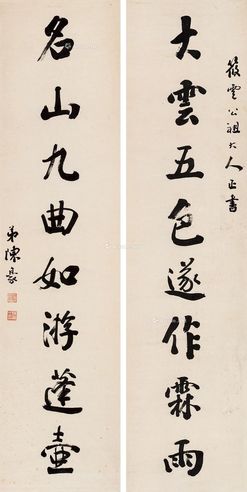 筱雲公祖大人正書
大雲五色遂作霖雨
名山九曲如游蓬壺
弟陳豪